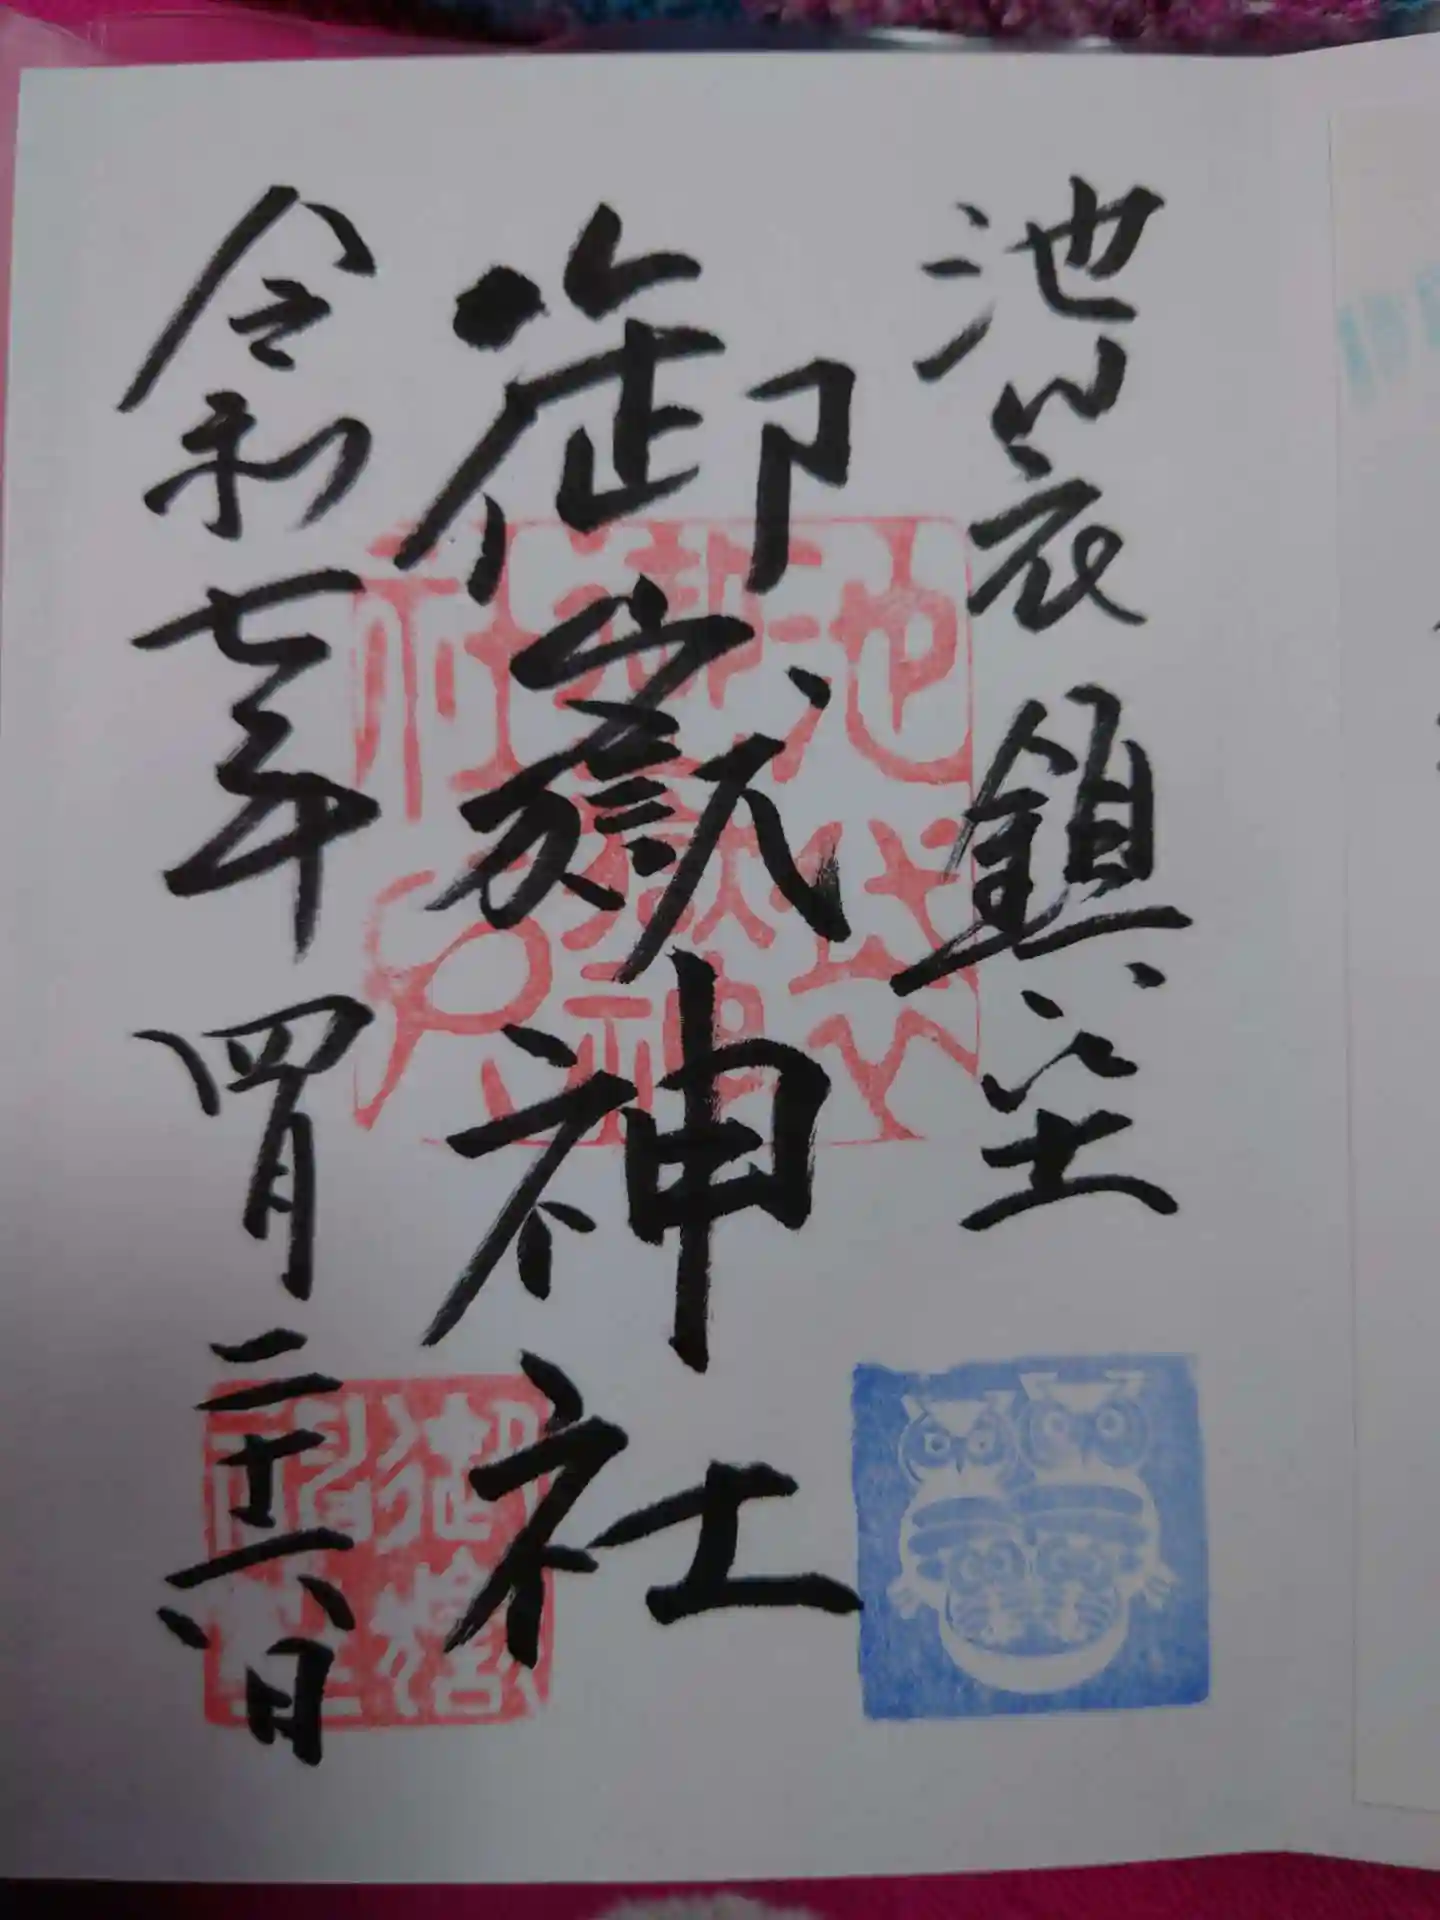 池袋鎮座
御嶽神社
令和七年四月二十六日
池袋
御嶽神
社